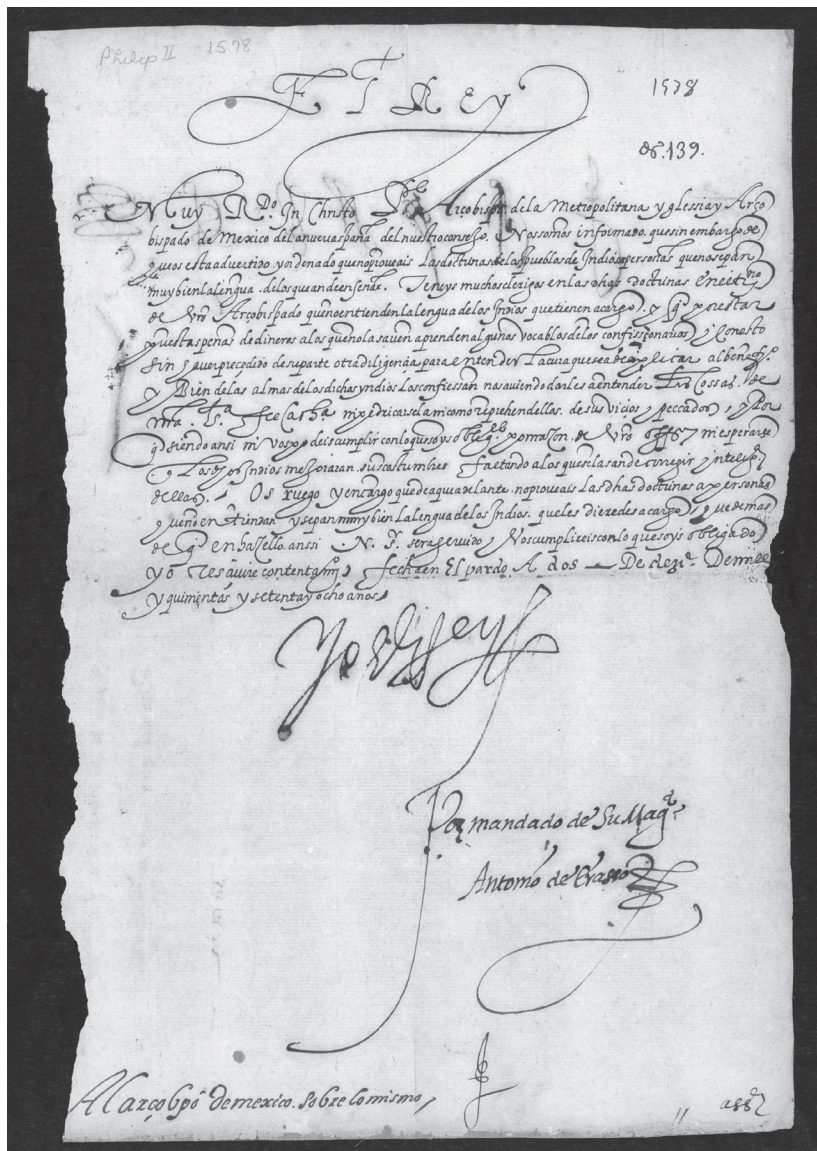 Philip II 1578
El Rey
1578
139.
Muy Rdo In Christo Pe Arçobispo de la Metropolitana yglessia y Arço
bispado de Mexico de la nueva spaña del nuestro consejo. Nos somos informado, que sin embargo de
que os esta advertido y ordenado que no proveais las doctrinas de los pueblos de Indios a personas que no sepan
muy bien la lengua de los que an de enseñar. Teneys muchos clerigos en las dhas doctrinas
de vro Arçobispado que no entienden la lengua de los Indios que tienen a cargo, y por estar
puestas penas de dineros a los que no la saven aprenden algunos vocablos de los confissionarios, y con esto
sin haver precedido de su parte otra diligencia para entender la cura que
y Bien de las almas de los dichos yndios los confiessan no saviendo darles a entender las cossas de
nra Sta Fee Catha ni predicarsela ni como reprehendellas de sus vicios y peccados, y Por
q siendo ansi ni vos podeis cumplir con lo que soys por razon de vro ni esperarse
los dhos Indios mejoraran sus costumbres faltando a los que las an de corregir
dellas, Os ruego y encargo que de aqui adelante no proveais las dhas doctrinas a personas
que no entiendan y sepan muy bien la lengua de los Indios que les dieredes a cargo, que demas
de q en hazello anssi N. S. sera servido, y vos cumplireis con lo que soys obligado
yo resçivire contentamio, fecha en El pardo A dos De dezie De mill
y quinientos y setenta y ocho años,
Yo el Rey
Por mandado de Su Magd
Antonio de Erasso
Al arçobpo de mexico. sobre lo mismo,